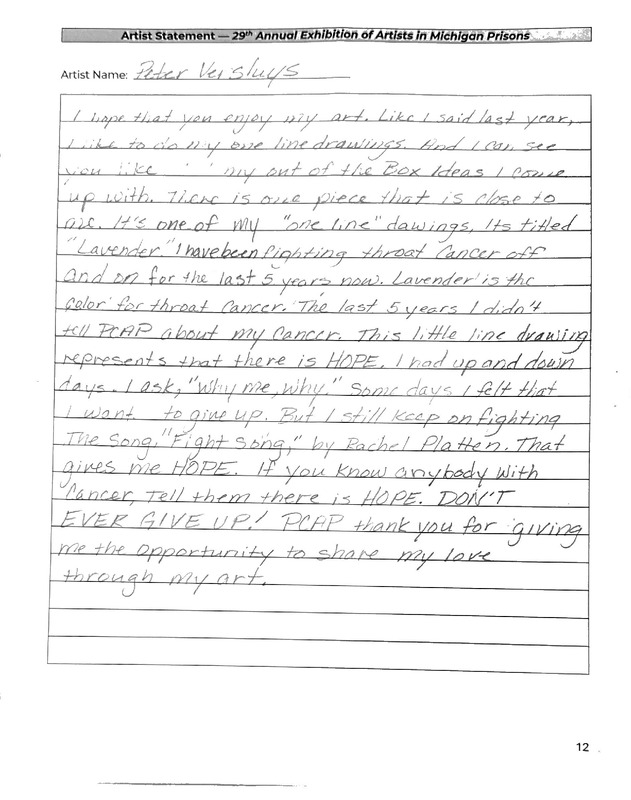 Artist Statement — 29th Annual Exhibition of Artists in Michigan Prisons
Artist Name: Peter Versluys
I hope that you enjoy my art. Like I said last year,
I like to do my one line drawings. And I can see
you like my out of the Box Ideas I come
up with. There is one piece that is close to
me. It's one of my "one line" dawings, Its titled
"Lavender." I have been fighting throat Cancer off
and on for the last 5 years now. Lavender is the
Color for throat Cancer. The last 5 years I didn't
tell PCAP about my Cancer. This little line drawing
represents that there is HOPE. I had up and down
days. I ask, "Why me, why." Some days I felt that
I want to give up. But I still keep on fighting
The Song, "Fight Song," by Rachel Platten. That
gives me HOPE. If you know anybody with
Cancer, Tell them there is HOPE. DON'T
EVER GIVE UP! PCAP thank you for giving
me the opportunity to share my love
through my art.
12